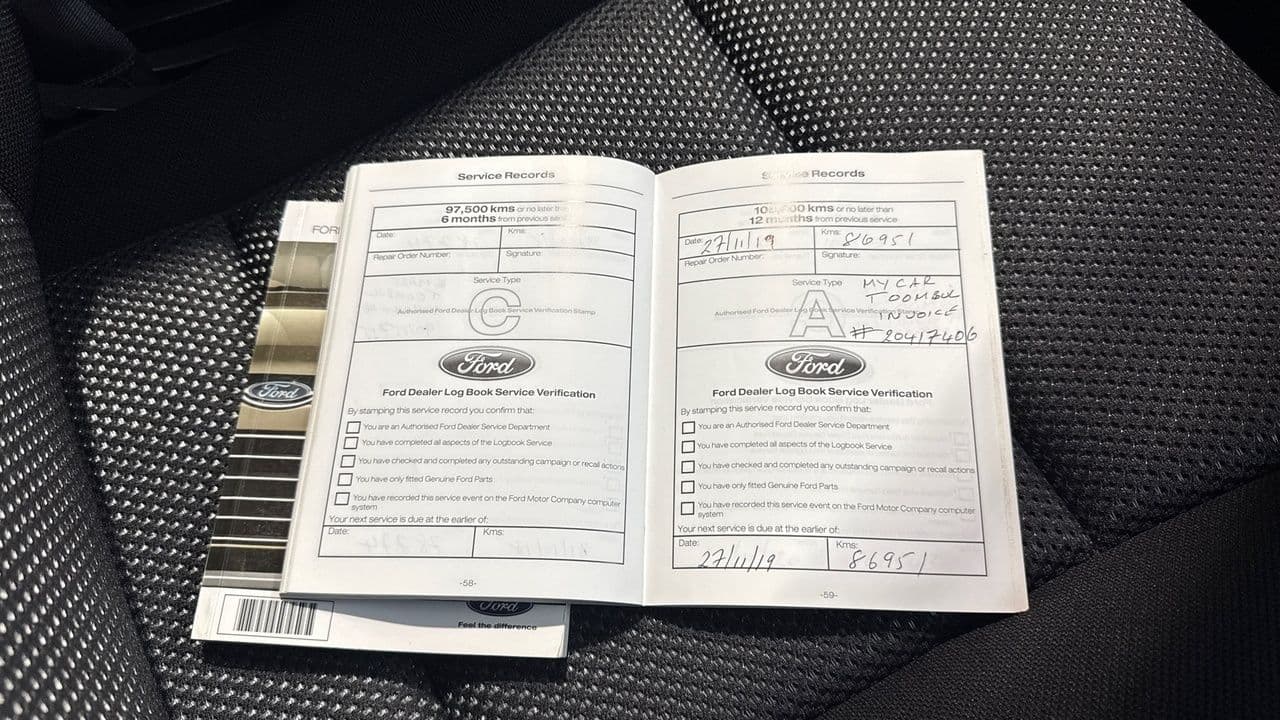 FORD
Ford
Ford
Feel the difference
Service Records
97,500 kms or no later than
6 months from previous service
Date:
Kms:
Repair Order Number:
Signature:
Service Type
C
Authorised Ford Dealer Log Book Service Verification Stamp
Ford
Ford Dealer Log Book Service Verification
By stamping this service record you confirm that:
You are an Authorised Ford Dealer Service Department
You have completed all aspects of the Logbook Service
You have checked and completed any outstanding campaign or recall actions
You have only fitted Genuine Ford Parts
You have recorded this service event on the Ford Motor Company computer
system
Your next service is due at the earlier of:
Date:
Kms:
-58-
Service Records
kms or no later than
12 months from previous service
Date: 27/11/19
Kms: 86951
Repair Order Number:
Signature:
Service Type
MY CAR
A
INVOICE
Authorised Ford Dealer Log Book Service Verification Stamp
# 20417406
Ford
Ford Dealer Log Book Service Verification
By stamping this service record you confirm that:
You are an Authorised Ford Dealer Service Department
You have completed all aspects of the Logbook Service
You have checked and completed any outstanding campaign or recall actions
You have only fitted Genuine Ford Parts
You have recorded this service event on the Ford Motor Company computer
system
Your next service is due at the earlier of:
Date: 27/11/19
Kms: 86951
-59-